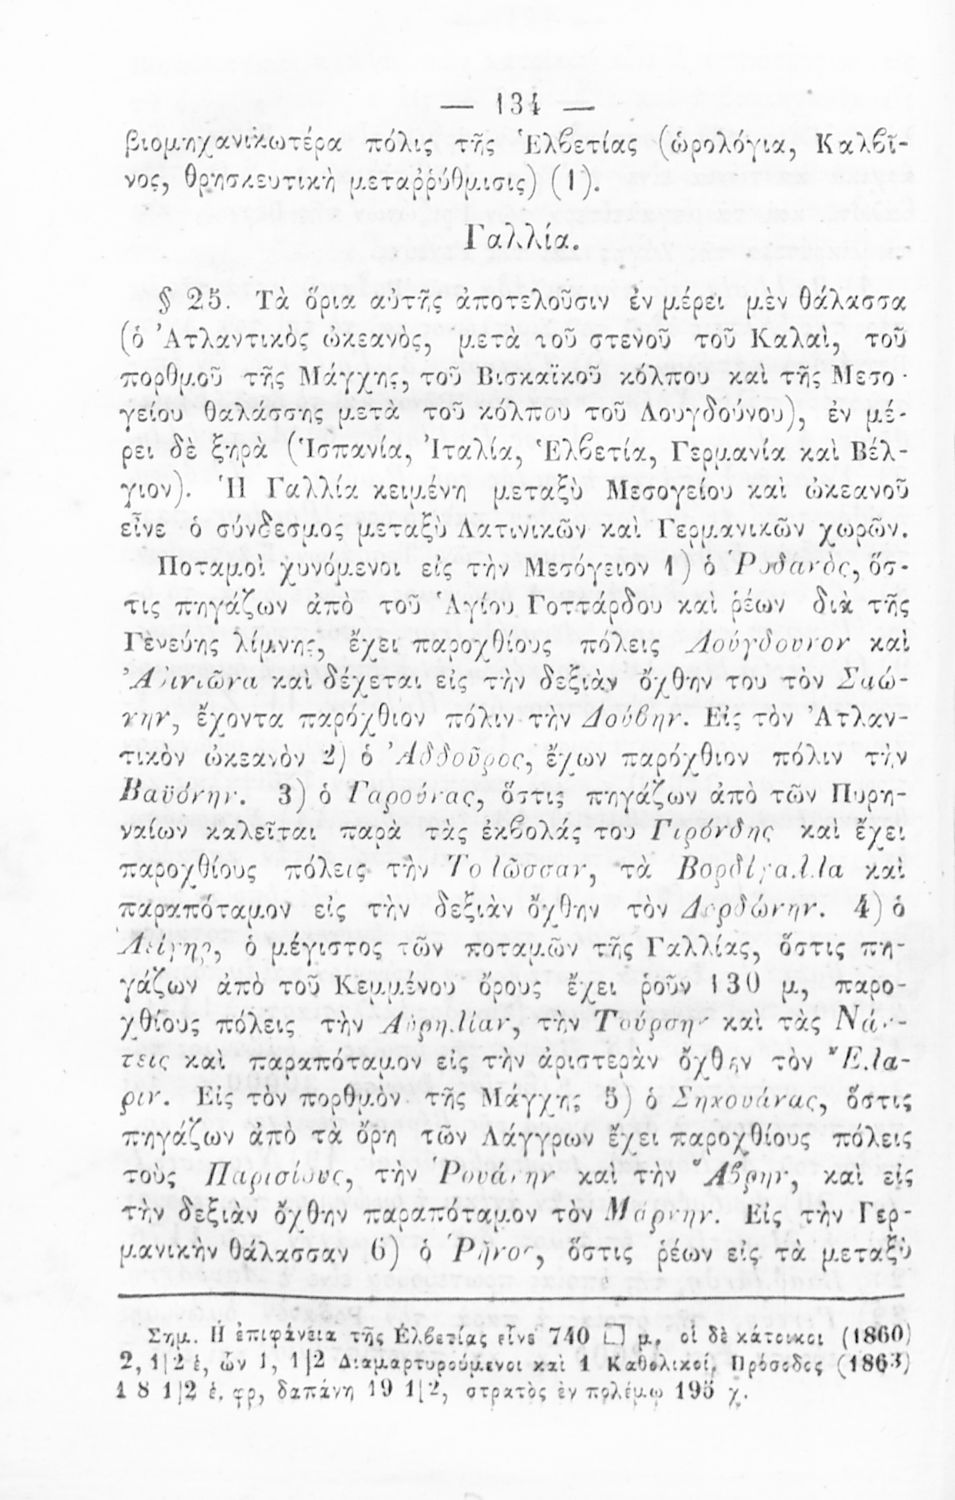 — 134 —
βιομηχανικωτέρα πόλις τῆς Ἑλβετίας (ὡρολόγια, Καλβῖ-
νος, θρησκευτικὴ μεταῤῥύθμισις) (1).
Γαλλία.
§ 25. Τὰ ὅρια αὐτῆς ἀποτελοῦσιν ἐν μέρει μὲν θάλασσα
(ὁ Ἀτλαντικὸς ὠκεανὸς, μετὰ τοῦ στενοῦ τοῦ Καλαὶ, τοῦ
πορθμοῦ τῆς Μάγχης, τοῦ Βισκαϊκοῦ κόλπου καὶ τῆς Μεσο-
γείου θαλάσσης μετὰ τοῦ κόλπου τοῦ Λουγδούνου), ἐν μέ-
ρει δὲ ξηρὰ (Ἱσπανία, Ἰταλία, Ἑλβετία, Γερμανία καὶ Βέλ-
γιον). Ἡ Γαλλία κειμένη μεταξὺ Μεσογείου καὶ ὠκεανοῦ
εἶνε ὁ σύνδεσμος μεταξὺ Λατινικῶν καὶ Γερμανικῶν χωρῶν.
Ποταμοὶ χυνόμενοι εἰς τὴν Μεσόγειον 1) ὁ Ῥοδανὸς, ὅσ-
τις πηγάζων ἀπὸ τοῦ Ἁγίου Γοττάρδου καὶ ῥέων διὰ τῆς
Γενεύης λίμνης, ἔχει παροχθίους πόλεις Λούγδουνον καὶ
Ἀβινιῶνα καὶ δέχεται εἰς τὴν δεξιὰν ὄχθην του τὸν Σαώ-
νην, ἔχοντα παρόχθιον πόλιν τὴν Δούβην. Εἰς τὸν Ἀτλαν-
τικὸν ὠκεανὸν 2) ὁ Ἀδδοῦρος, ἔχων παρόχθιον πόλιν τὴν
Βαϋόνην. 3) ὁ Γαρούνας, ὅστις πηγάζων ἀπὸ τῶν Πυρη-
ναίων καλεῖται παρὰ τὰς ἐκβολάς του Γιρόνδης καὶ ἔχει
παροχθίους πόλεις τὴν Τολῶσσαν, τὰ Βορδίγαλλα καὶ
παραπόταμον εἰς τὴν δεξιὰν ὄχθην τὸν Δορδώνην. 4) ὁ
Λείγηρ, ὁ μέγιστος τῶν ποταμῶν τῆς Γαλλίας, ὅστις πη-
γάζων ἀπὸ τοῦ Κεμμένου ὄρους ἔχει ῥοῦν 130 μ, παρο-
χθίους πόλεις τὴν Αὐρηλίαν, τὴν Τούρσην καὶ τὰς Νάν-
τεις καὶ παραπόταμον εἰς τὴν ἀριστερὰν ὄχθην τὸν Ἔλα-
ριν. Εἰς τὸν πορθμὸν τῆς Μάγχης 5) ὁ Σηκουάνας, ὅστις
πηγάζων ἀπὸ τὰ ὄρη τῶν Λάγγρων ἔχει παροχθίους πόλεις
τοὺς Παρισίους, τὴν Ῥουάνην καὶ τὴν Ἄβρην, καὶ εἰς
τὴν δεξιὰν ὄχθην παραπόταμον τὸν Μάρνην. Εἰς τὴν Γερ-
μανικὴν θάλασσαν 6) ὁ Ῥῆνος, ὅστις ῥέων εἰς τὰ μεταξὺ
Σημ. Ἡ ἐπιφάνεια τῆς Ἑλβετίας εἶνε 740 □ μ, οἱ δὲ κάτοικοι (1860)
2, 1|2 ἑ, ὧν 1, 1|2 Διαμαρτυρούμενοι καὶ 1 Καθολικοί. Πρόσοδος (1863)
18 1|2 ἑ. φρ, δαπάνη 19 1|2, στρατὸς ἐν πολέμῳ 195 χ.